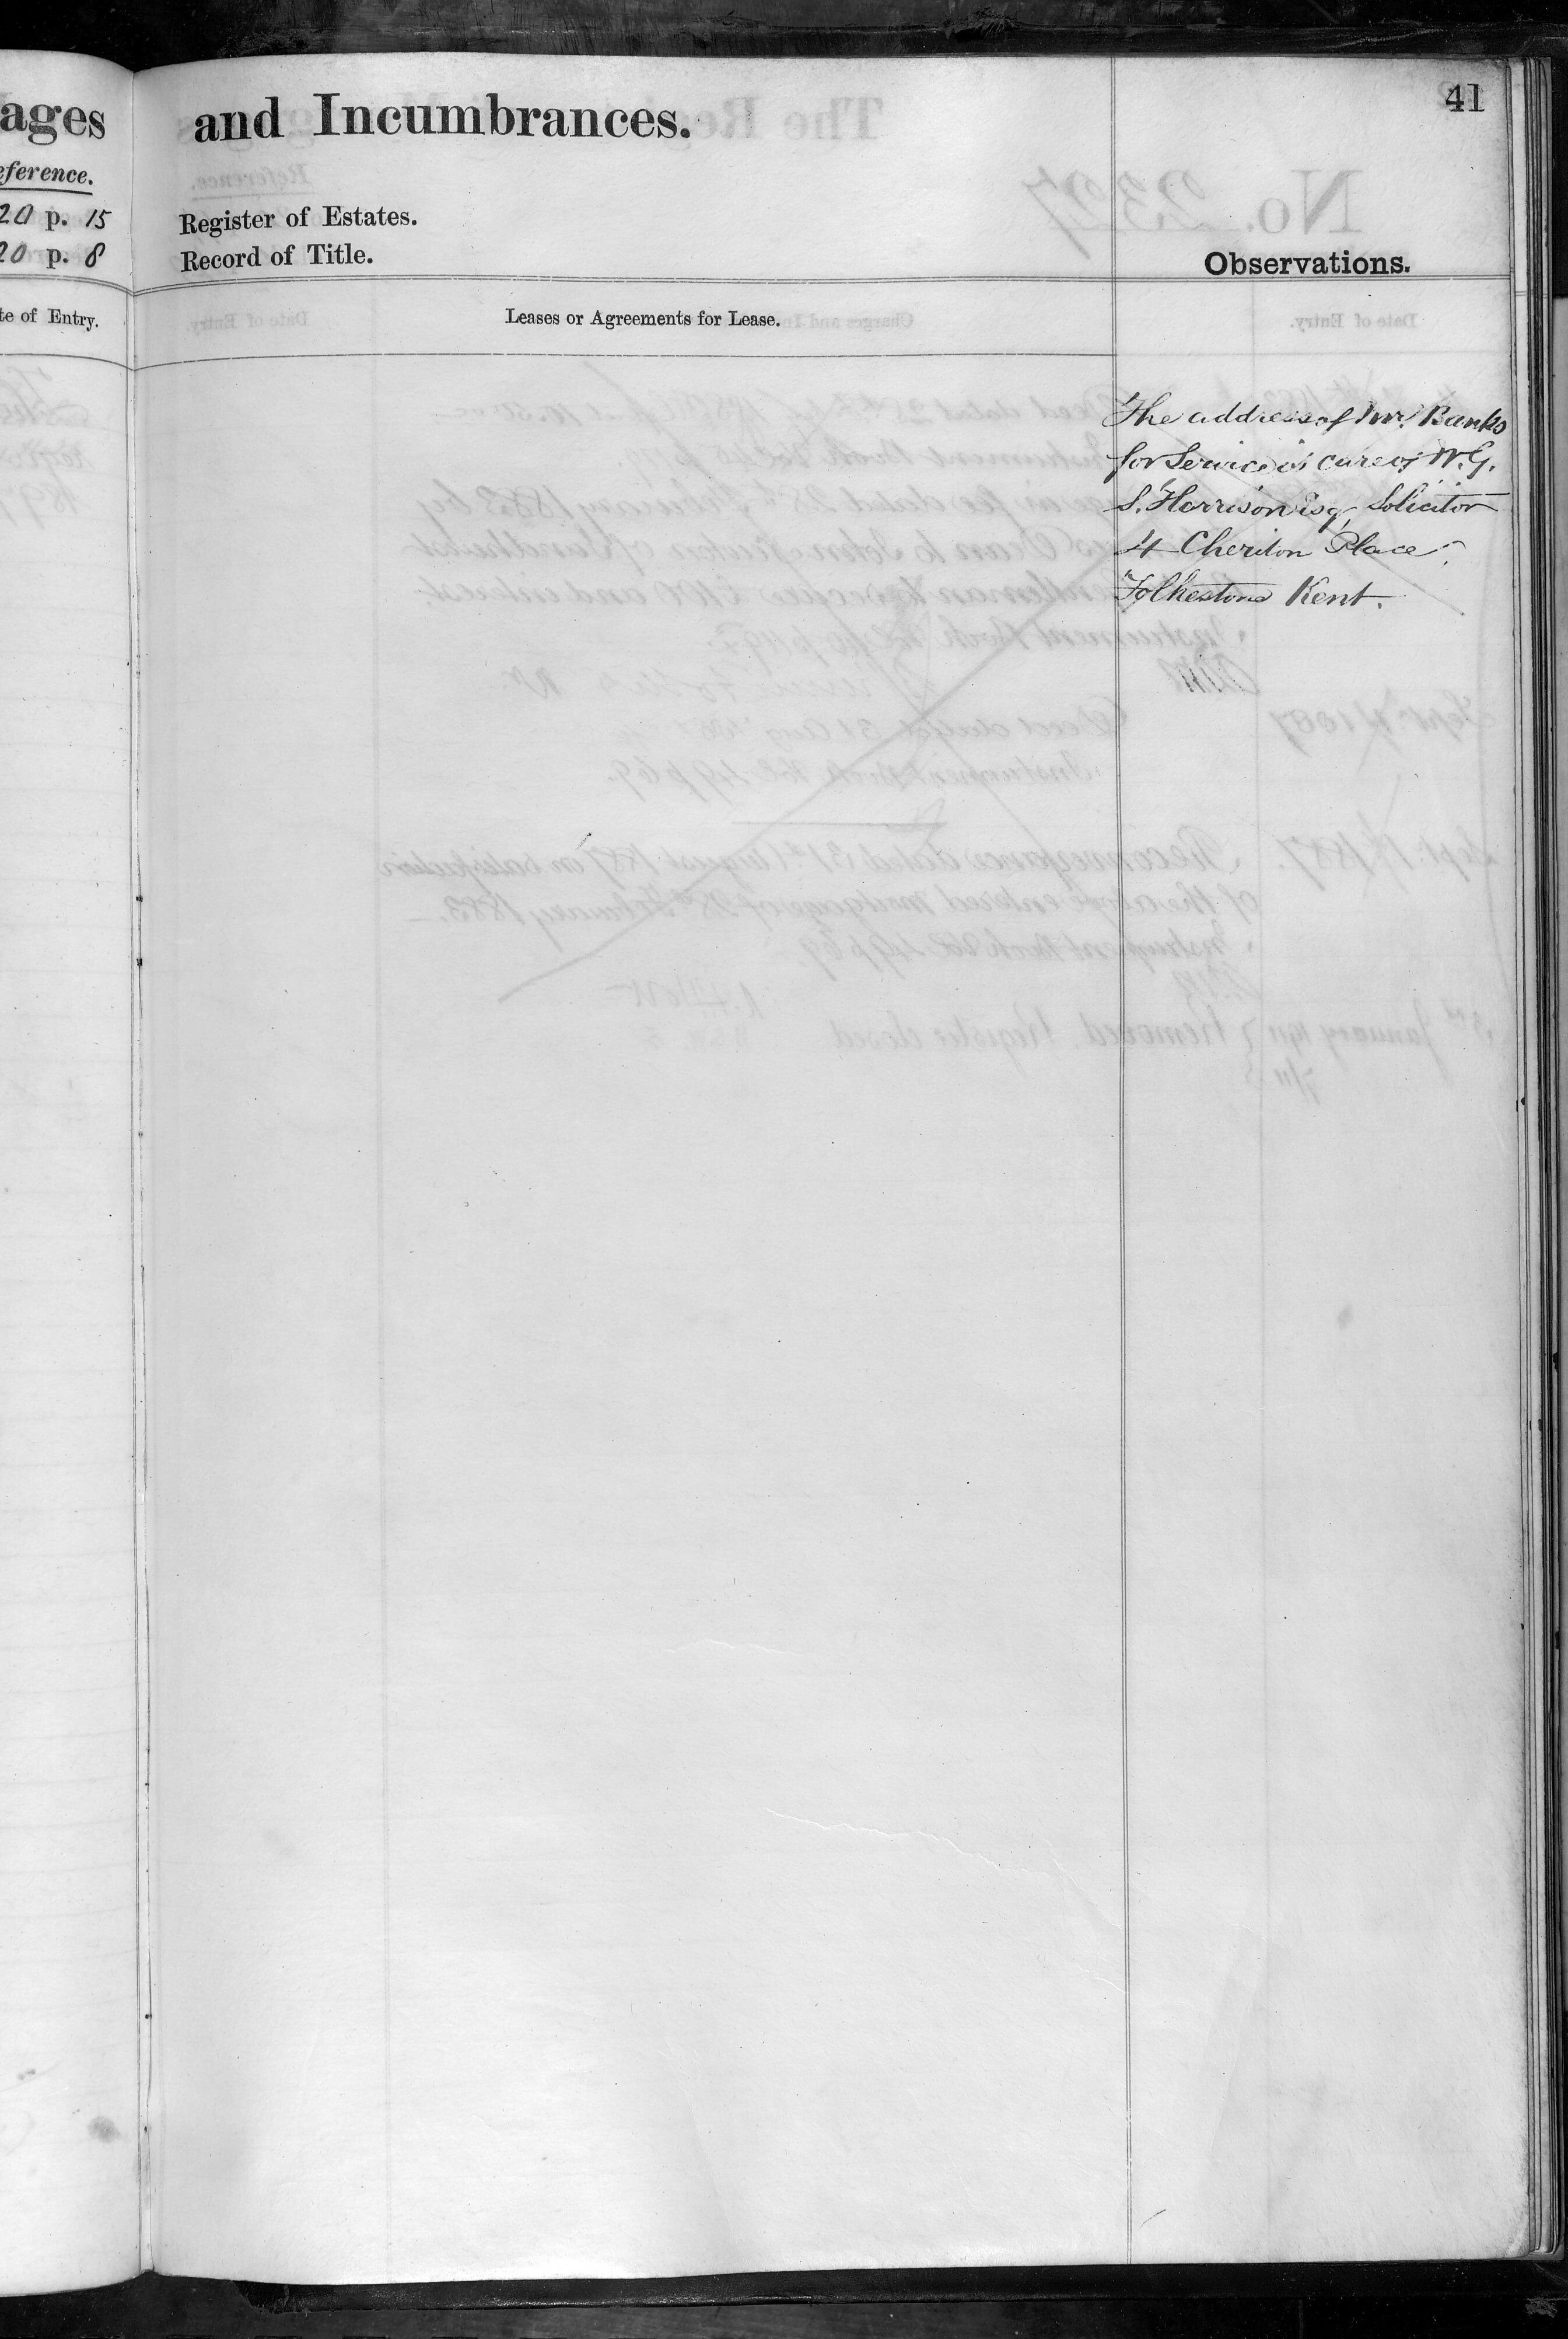 ages
and Incumbrances.
41
eference.
20 p. 15
Register of Estates.
20 p. 8
Record of Title.
Observations.
te of Entry.
Leases or Agreements for Lease.
The address of Mr. Banks
for Service is care of W. G.
S. Harrison Esq, Solicitor
4 Cheriton Place
Folkestone Kent.